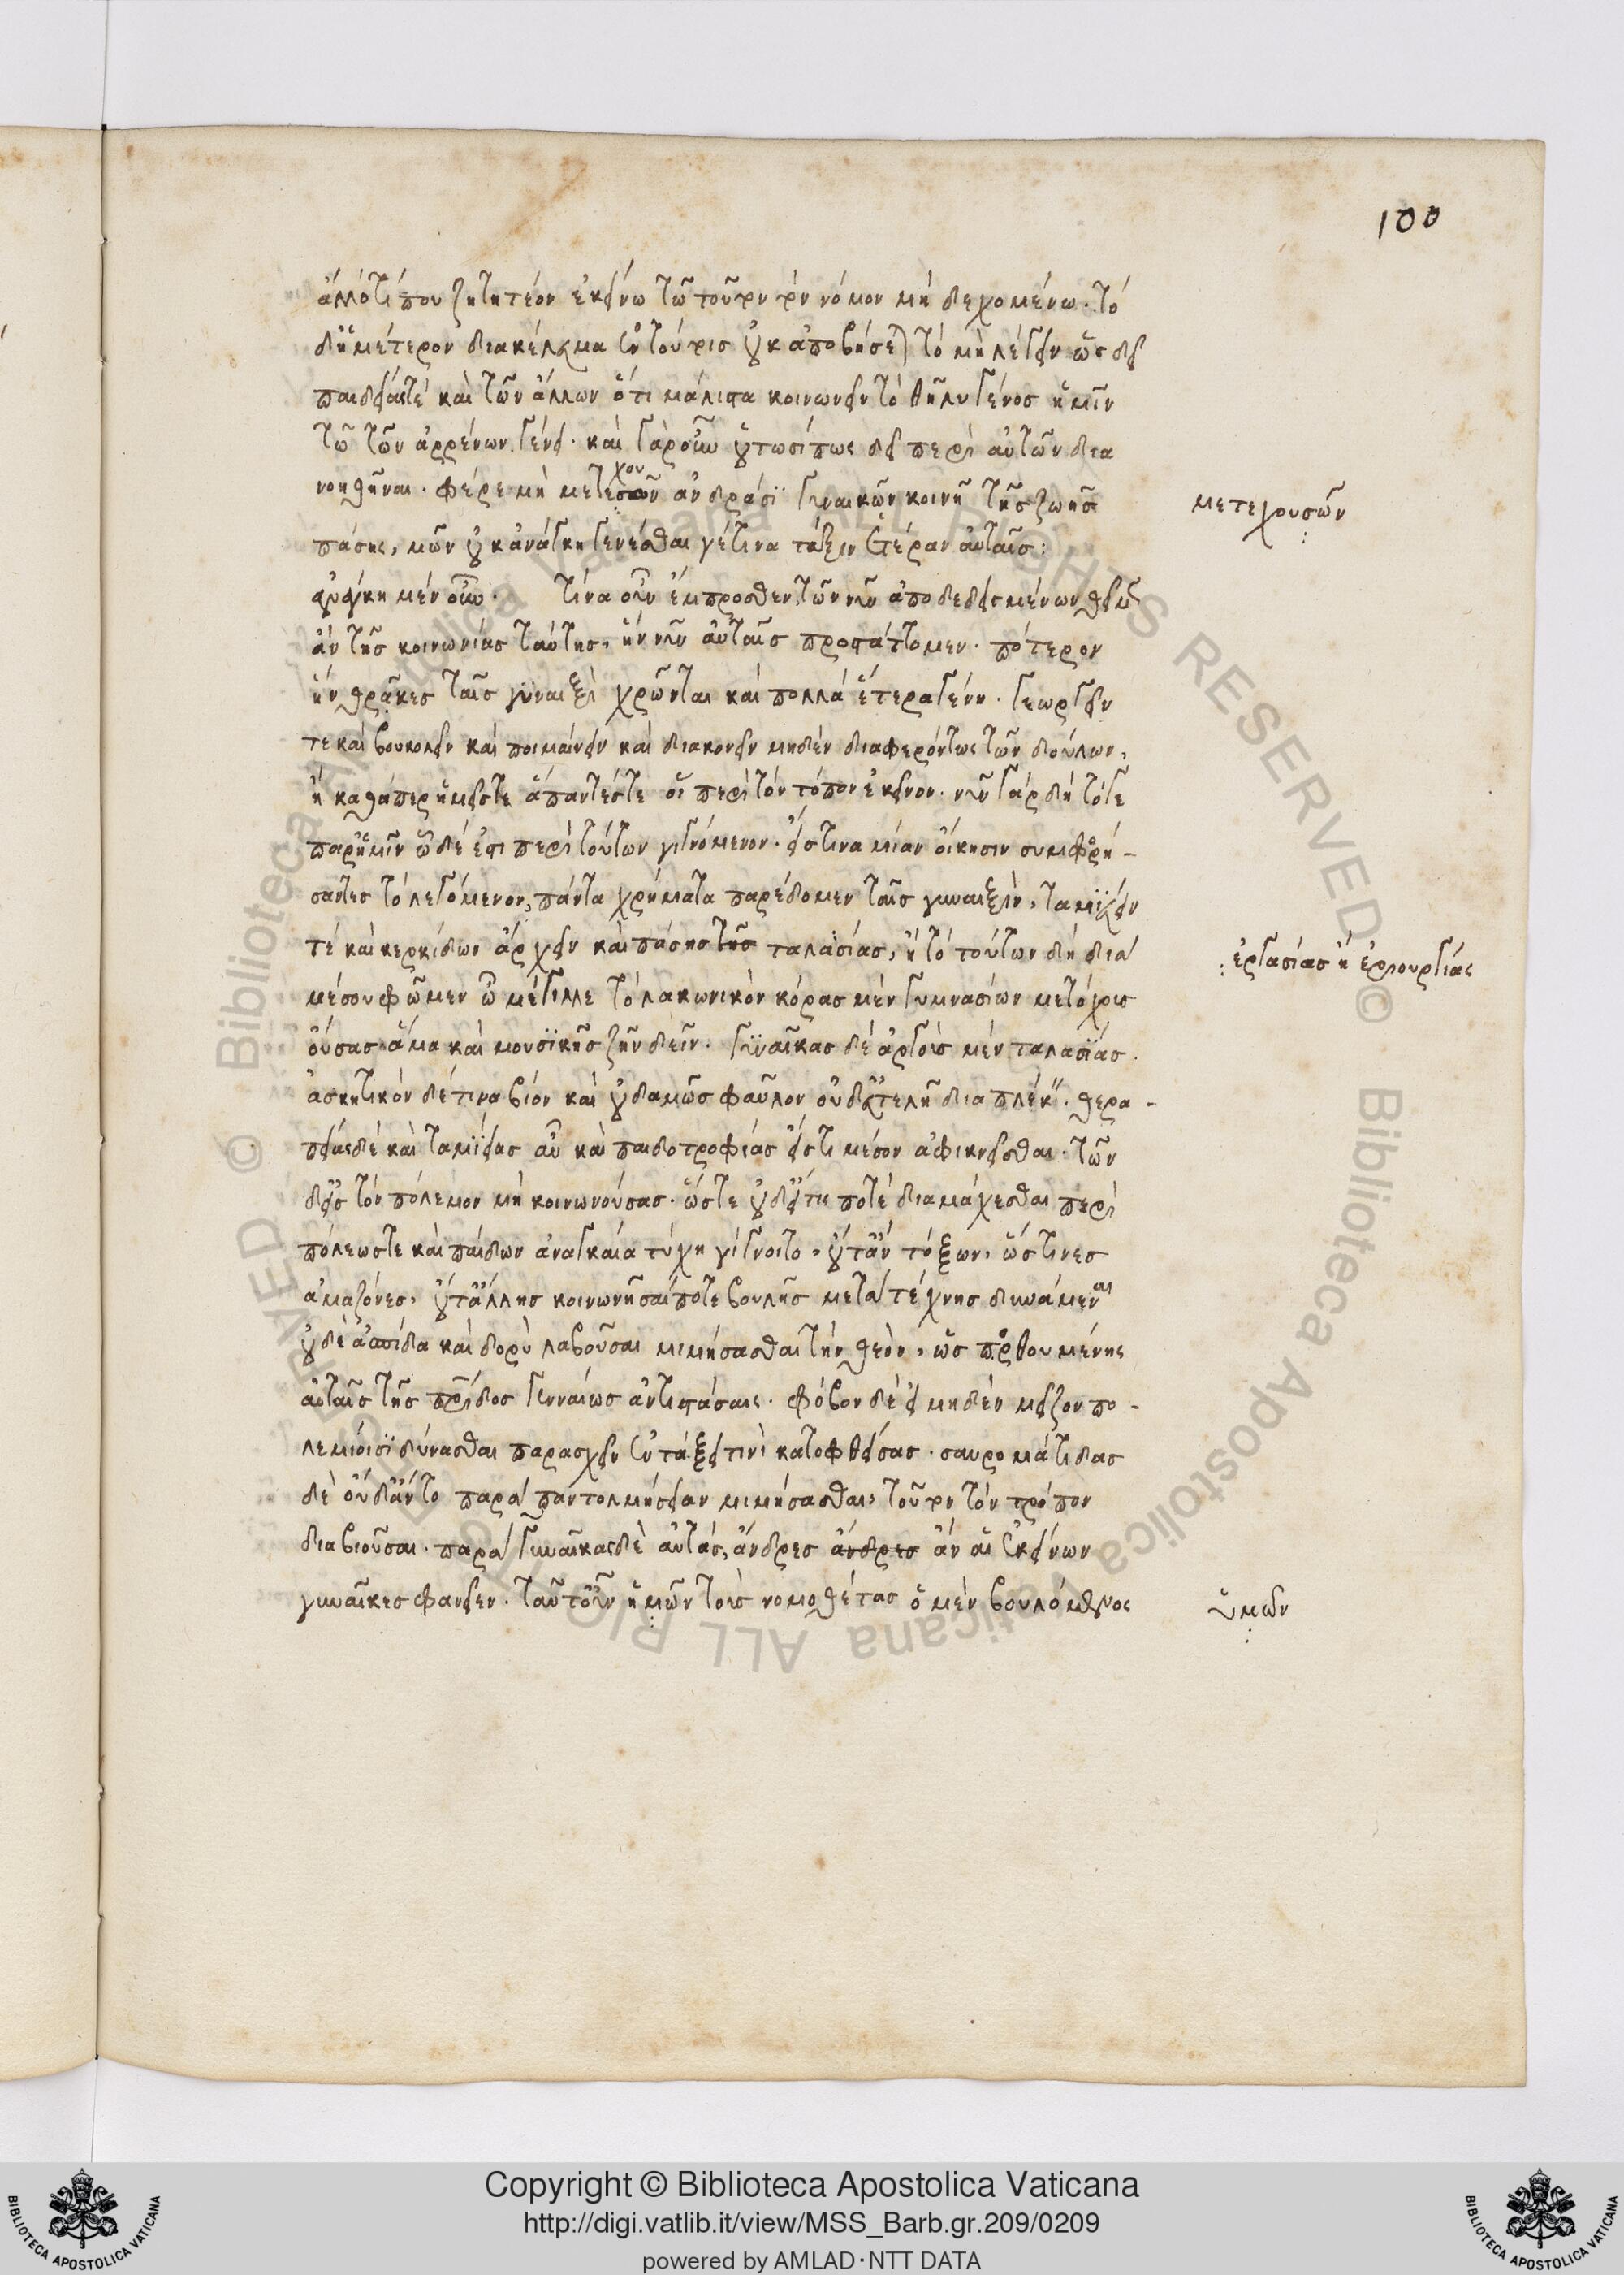 100
ἄλλό τί που ζητητέον ἐκείνω τῶ τοῦτον τὸν νόμον μὴ δεχομένω. τὸ
δ' ἡμέτερον διακέλευμα ἐν τούτοις οὐκ ἀποβήσεται τὸ μὴ λέγειν ὡς δεῖ
παιδείας τὲ καὶ τῶν ἄλλων ὅτι μάλιστα κοινωνεῖν τὸ θῆλυ γένος ἡμῖν
τῶ τῶν ἀρρένων γένει. καὶ γὰρ οὖν οὕτωσί πως δεῖ περὶ αὐτῶν δια
νοηθῆναι. φέρε μὴ μετεχουσῶν ἀνδράσϊ γυναικῶν κοινῆ τῆς ζωῆς
μετεχουσῶν
πάσης, μῶν οὐκ ἀνάγκη γενέσθαι γέ τινα τάξιν ἑτέραν αὐταῖς:
ἀνάγκη μὲν οὖν. τίνα οὖν ἔμπροσθεν τῶν νῦν ἀποδεδειγμένων θεῖμεν
ἂν τῆς κοινωνίας ταύτης, ἣν νῦν αὐταῖς προστάττομεν. πότερον
ἣν θρᾶκες ταῖς γυναιξὶ χρῶνται καὶ πολλὰ ἕτερα γένη. γεωργεῖν
τε καὶ βουκολεῖν καὶ ποιμαίνειν καὶ διακονεῖν μηδὲν διαφερόντως τῶν δούλων,
ἢ καθάπερ ἡμεῖς τε ἅπαντές τε οἱ περὶ τὸν τόπον ἐκεῖνον. νῦν γὰρ δὴ τό γε
παρ' ἡμῖν ὧδέ ἐστι περὶ τούτων γιγνόμενον. εἴς τινα μίαν οἴκησιν συμφορή-
σαντες τὸ λεγόμενον, πάντα χρήματα παρέδομεν ταῖς γυναιξὶν, ταμϊεύειν
τὲ καὶ κερκίδων ἄρχειν καὶ πάσης τῆς ταλασίας, ἢ τὸ τούτων δὴ διὰ
ἐργασίας ἢ ἐριουργίας
μέσου φῶμεν ὦ μέγιλλε τὸ λακωνικὸν κόρας μὲν γυμνασίων μετόχους
οὔσας ἅμα καὶ μουσϊκῆς ζῆν δεῖν. γυναῖκας δὲ ἀργοὺς μὲν ταλασϊας.
ἀσκητικὸν δέ τινα βίον καὶ οὐδαμῶς φαῦλον οὐδ' εὐτελῆ διαπλέκειν. θερα-
πείας δὲ καὶ ταμϊείας αὖ καὶ παιδοτροφίας εἴς τι μέσον ἀφικνεῖσθαι. τῶν
δ' εἰς τὸν πόλεμον μὴ κοινωνούσας. ὥστε οὐδ' εἴ τις ποτὲ διαμάχεσθαι περὶ
πόλεώς τε καὶ παίδων ἀναγκαία τύχη γίγνοιτο, οὔτ' ἂν τόξων, ὥς τινες
ἀμαζόνες, οὔτ' ἄλλης κοινωνῆσαί ποτε βουλῆς μετὰ τέχνης δυνάμεναι
οὐδὲ ἀσπίδα καὶ δορὺ λαβοῦσαι μιμήσασθαι τὴν θεὸν, ὡς πορθουμένης
αὐταῖς τῆς πατρίδος γενναίως ἀντιστάσαις. φόβον δὲ εἰ μηδὲν μεῖζον πο-
λεμίοισϊ δύνασθαι παρασχεῖν ἐν τάξει τινὶ κατοφθείσας. σαυρομάτιδας
δὲ οὐδ' ἂν τὸ παρὰ πὰν τολμήσειαν μιμήσασθαι, τοῦτον τὸν τρόπον
διαβιοῦσαι. παρὰ γυναῖκας δὲ αὐτὰς, ἄνδρες ἄνδρες ἂν αἱ ἐκείνων
γυναῖκες φανεῖεν. ταῦτ' οὖν ἡμῶν τοὺς νομοθέτας ὁ μὲν βουλόμενος
ὑμῶν
Copyright © Biblioteca Apostolica Vaticana
http://digi.vatlib.it/view/MSS_Barb.gr.209/0209
powered by AMLAD·NTT DATA